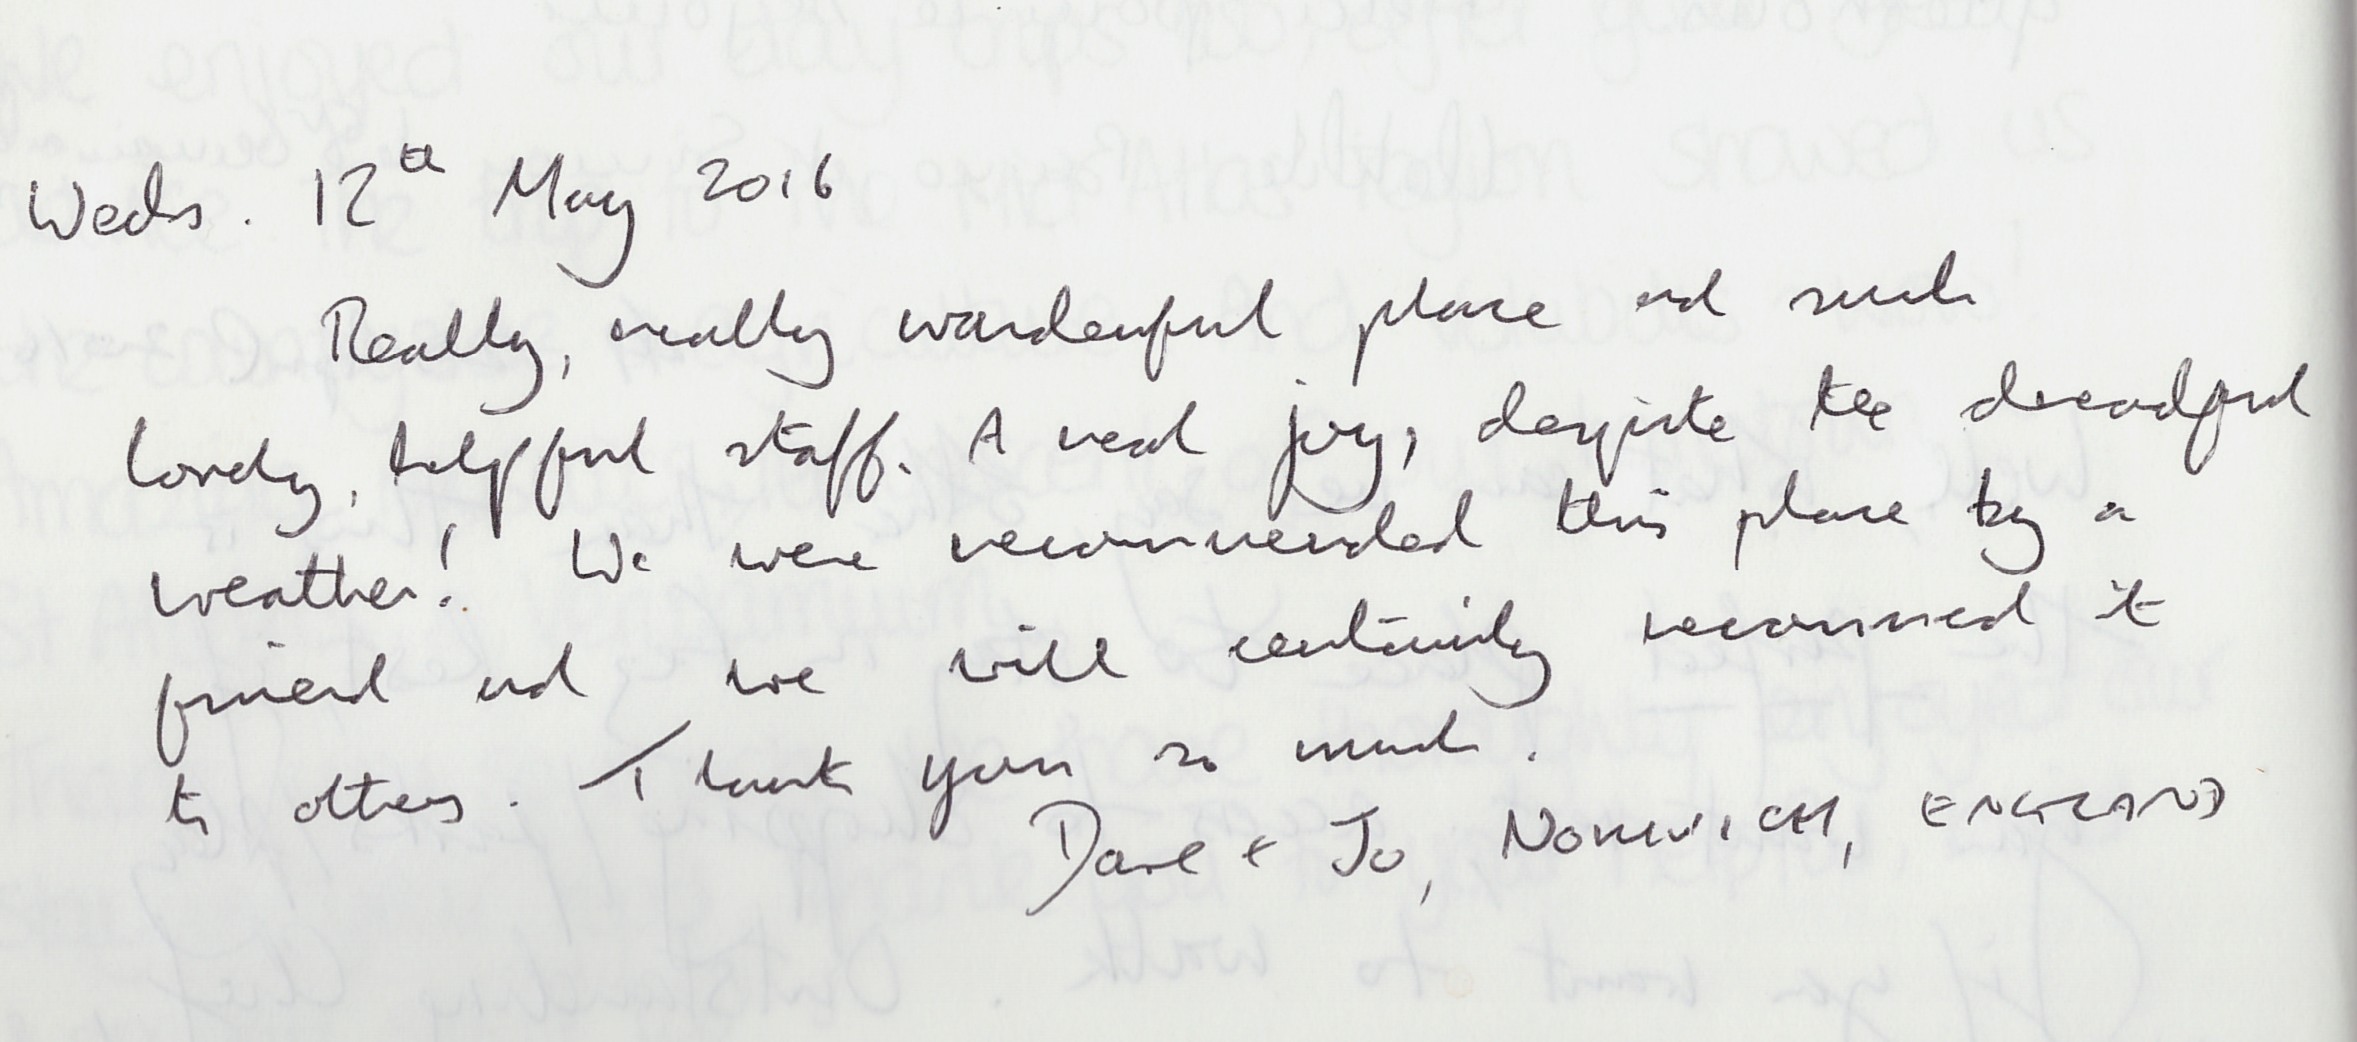 Weds. 12th May 2016
Really, really wonderful place and such
lovely, helpful staff. A real joy, despite the dreadful
weather! We were recommended this place by a
friend and we will certainly recommend it
to others. Thank you so much.
Dave + Jo, NORWICH, ENGLAND